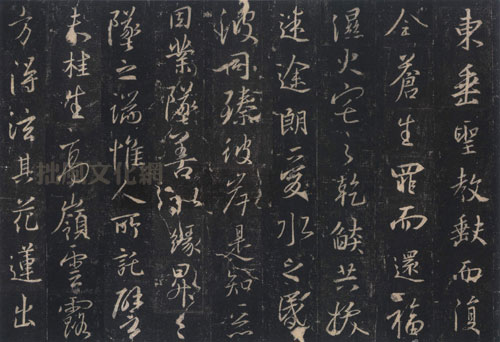 東垂聖教缺而復
全蒼生罪而還福
濕火宅之乾燄共拔
迷途朗愛水之昏
波同臻彼岸是知惡
因業墜善以緣昇昇
墜之端惟人所託譬
夫桂生高嶺雲露
方得泫其花蓮出
拙風文化網